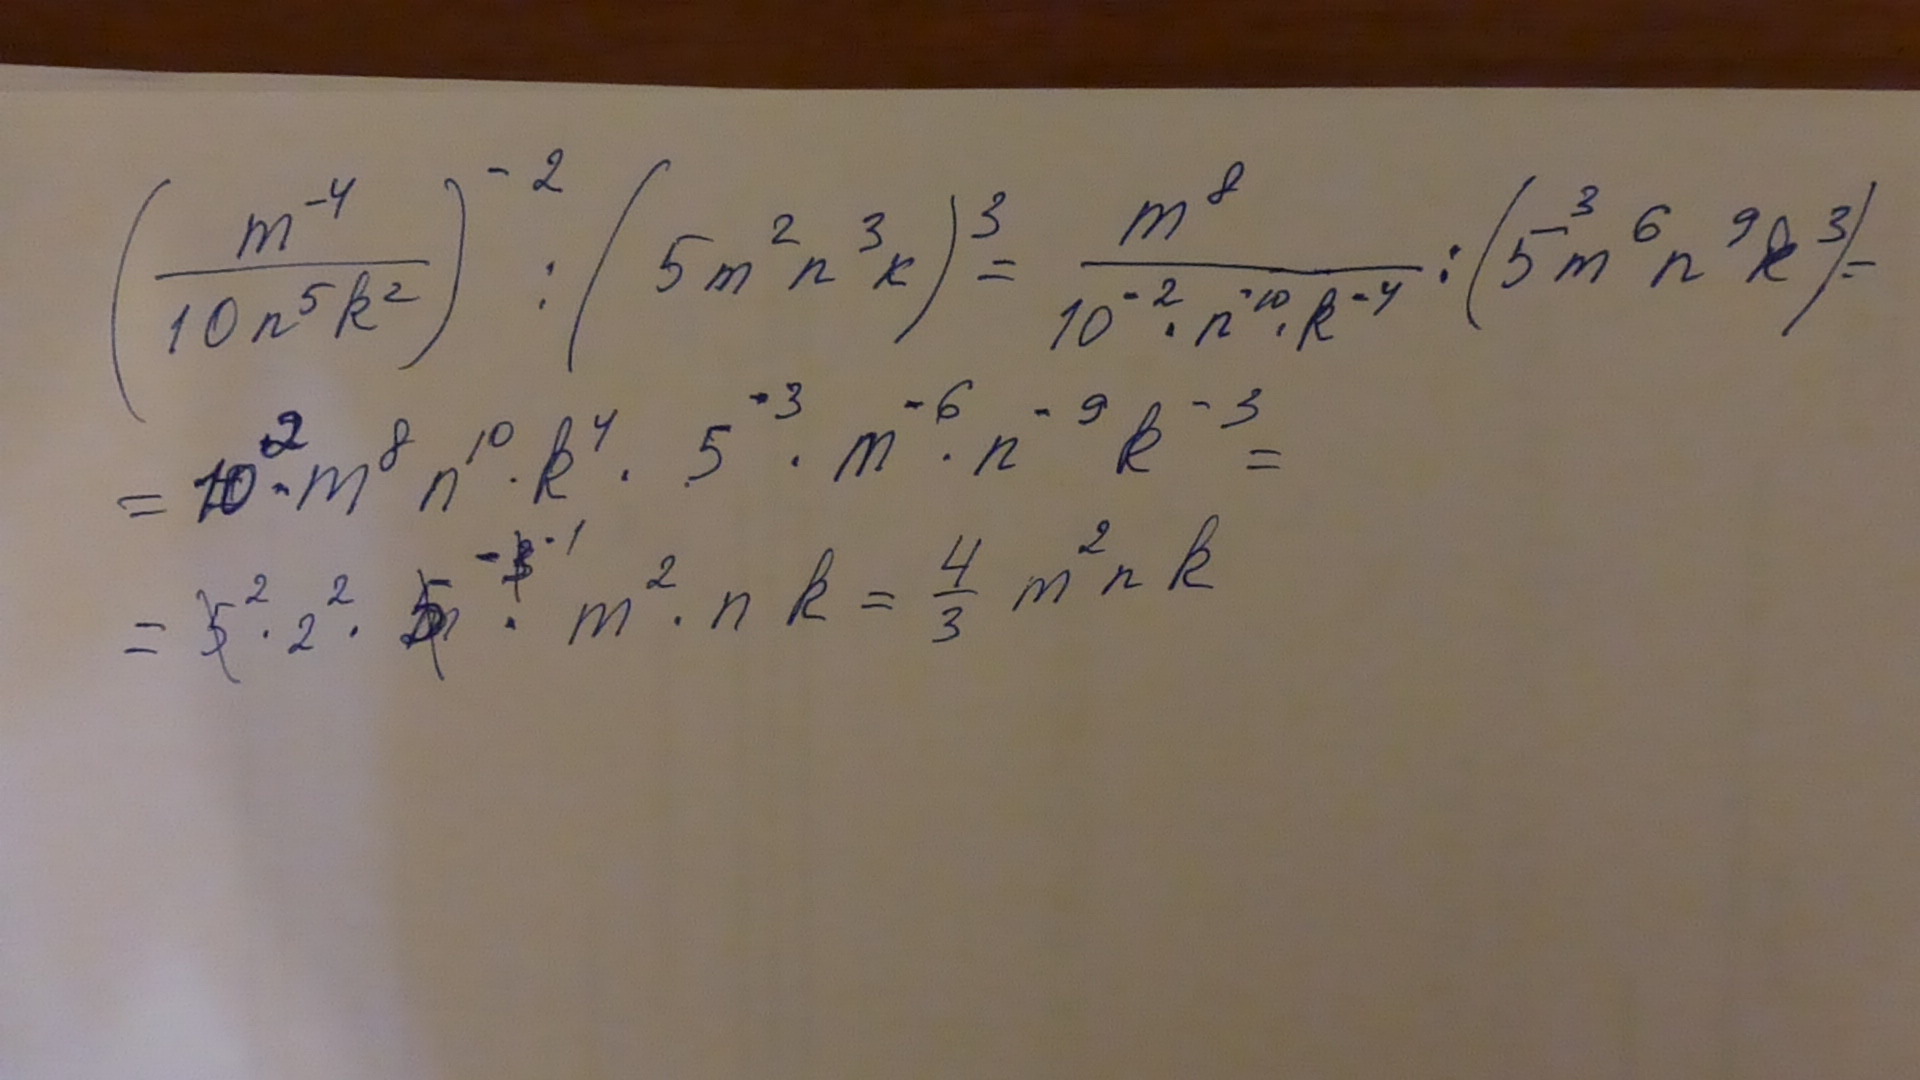 (m⁻⁴/10n⁵k²)⁻² : (5m²n³k)³ = m⁸/10⁻²·n⁻¹⁰·k⁻⁴ : (5³m⁶n⁹k³) =
= 10²·m⁸n¹⁰·k⁴·5⁻³·m⁻⁶·n⁻⁹k⁻³ =
= 5²·2²·5⁻³ ⁻¹·m²·nk = 4/3 m²nk